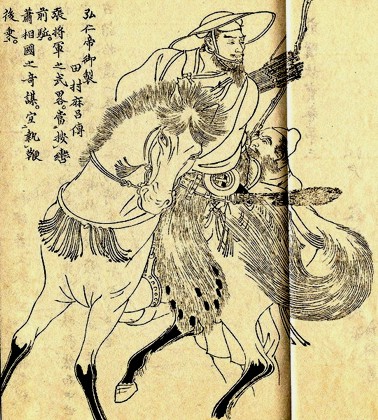 弘仁帝御製
田村麻呂傳
張將軍之武略。當按轡
前駈。
蕭相國之奇謀。宜執鞭
後乘。